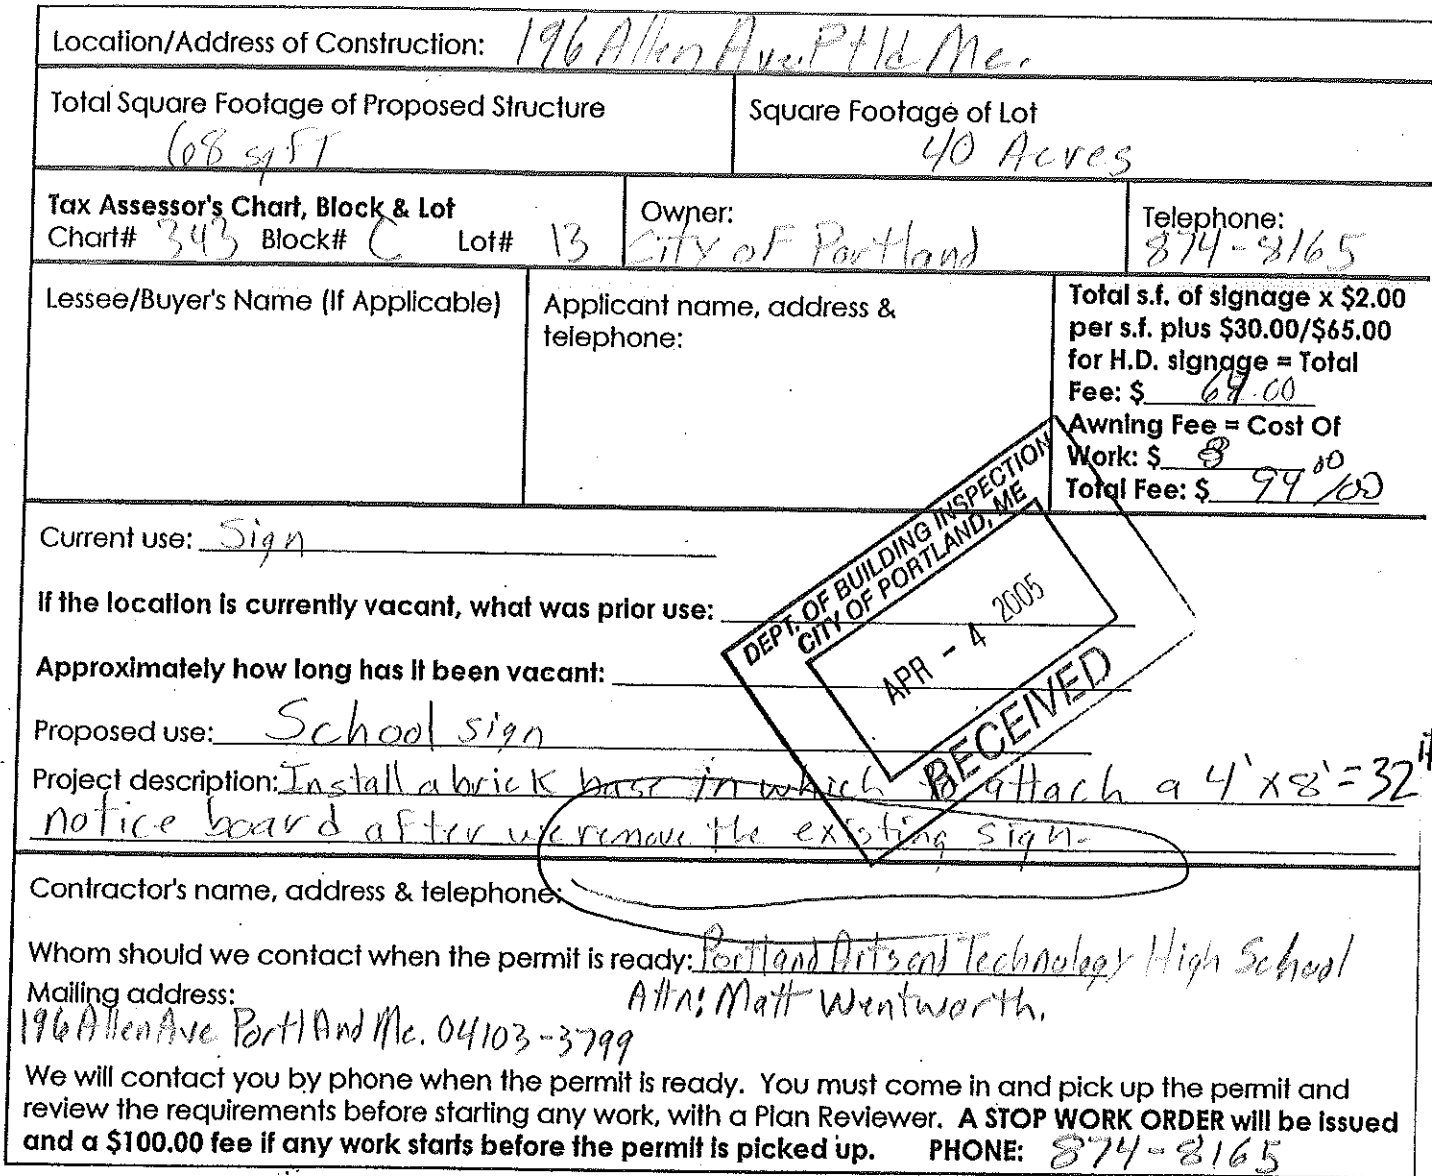 Location/Address of Construction: 196 Allen Ave. Ptld Me.
Total Square Footage of Proposed Structure
68 sq FT
Square Footage of Lot
40 Acres
Tax Assessor's Chart, Block & Lot
Chart# 343 Block# C Lot# 13
Owner:
City of Portland
Telephone:
874-8165
Lessee/Buyer's Name (If Applicable)
Applicant name, address &
telephone:
Total s.f. of signage x $2.00
per s.f. plus $30.00/$65.00
for H.D. signage = Total
Fee: $ .00
Awning Fee = Cost Of
Work: $
Total Fee: $ 94 00/00
Current use: Sign
If the location is currently vacant, what was prior use:
Approximately how long has it been vacant:
Proposed use: School sign
Project description: Install a brick base in which to attach a 4' x 8' = 32
notice board after we remove the existing sign.
DEPT. OF BUILDING INSPECTION
CITY OF PORTLAND, ME
APR - 4 2005
RECEIVED
Contractor's name, address & telephone:
Whom should we contact when the permit is ready: Portland Arts and Technology High School
Attn: Matt Wentworth.
Mailing address:
196 Allen Ave Portland Me. 04103-3799
We will contact you by phone when the permit is ready. You must come in and pick up the permit and
review the requirements before starting any work, with a Plan Reviewer. A STOP WORK ORDER will be issued
and a $100.00 fee if any work starts before the permit is picked up. PHONE: 874-8165